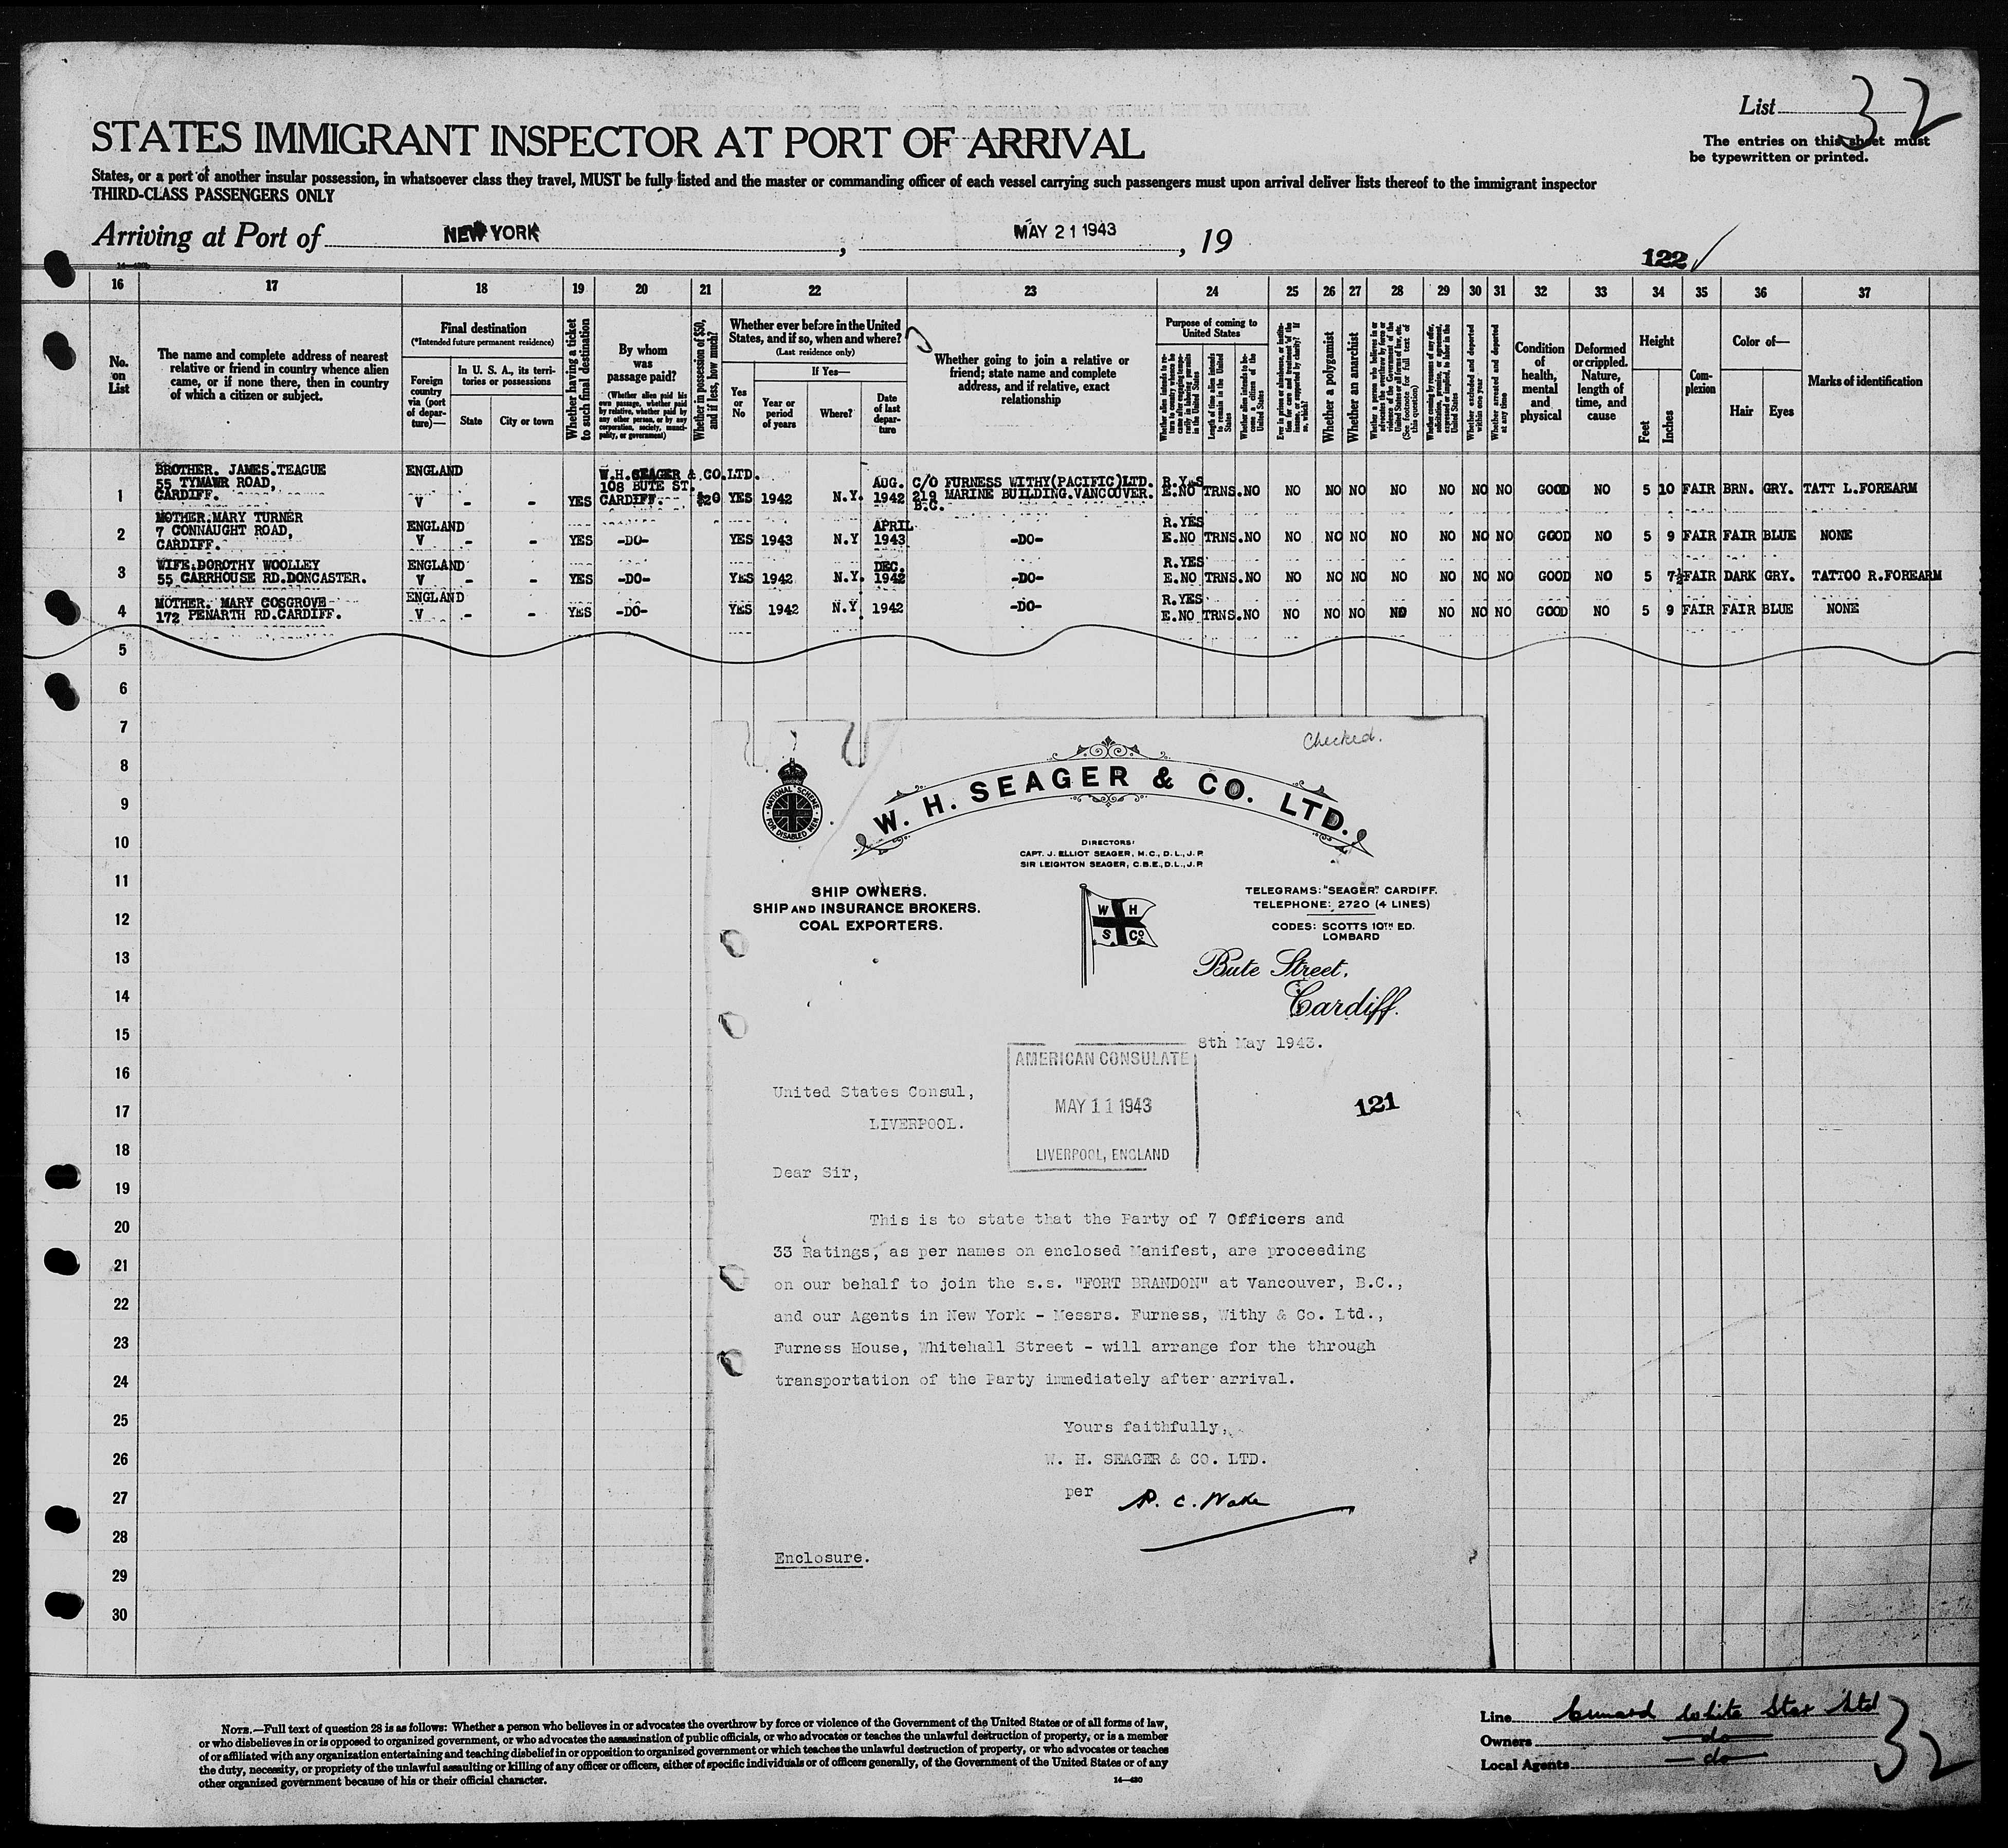 List 32
STATES IMMIGRANT INSPECTOR AT PORT OF ARRIVAL
The entries on this sheet must
be typewritten or printed.
States, or a port of another insular possession, in whatsoever class they travel, MUST be fully listed and the master or commanding officer of each vessel carrying such passengers must upon arrival deliver lists thereof to the immigrant inspector
THIRD-CLASS PASSENGERS ONLY
Arriving at Port of NEW YORK, MAY 21 1943, 19
122
16 17 18 19 20 21 22 23 24 25 26 27 28 29 30 31 32 33 34 35 36 37
No. on List
The name and complete address of nearest
relative or friend in country whence alien
came, or if none there, then in country
of which a citizen or subject.
Final destination
(*Intended future permanent residence)
Foreign country via (port of departure)—
In U. S. A., its territories or possessions
State
City or town
Whether having a ticket to such final destination
By whom was passage paid?
(Whether alien paid his own passage, whether paid by relative, whether paid by any other person, or by any corporation, society, municipality, or government)
Whether in possession of $50, and if less, how much?
Whether ever before in the United
States, and if so, when and where?
(Last residence only)
Yes or No
If Yes—
Year or period of years
Where?
Date of last departure
Whether going to join a relative or
friend; state name and complete
address, and if relative, exact
relationship
Purpose of coming to
United States
Length of time alien intends to remain in the United States
Whether alien intends to become a citizen of the United States
Whether a polygamist
Whether an anarchist
Whether excluded and deported within one year
Whether arrested and deported at any time
Condition of health, mental and physical
Deformed or crippled. Nature, length of time, and cause
Height
Feet
Inches
Complexion
Color of—
Hair
Eyes
Marks of identification
BROTHER. JAMES.TEAGUE
55 TYMAWR ROAD,
CARDIFF.
1 ENGLAND V - - YES W.H.SEAGER & CO.LTD. 108 BUTE ST. CARDIFF $20 YES 1942 N.Y. AUG. 1942 C/O FURNESS WITHY(PACIFIC)LTD. 219 MARINE BUILDING.VANCOUVER. B.C. R.YES E.NO TRNS. NO NO NO NO NO NO NO NO GOOD NO 5 10 FAIR BRN. GRY. TATT L.FOREARM
MOTHER.MARY TURNER
7 CONNAUGHT ROAD,
CARDIFF.
2 ENGLAND V - - YES -DO- YES 1943 N.Y APRIL 1943 -DO- R.YES E.NO TRNS. NO NO NO NO NO NO NO NO GOOD NO 5 9 FAIR FAIR BLUE NONE
WIFE.DOROTHY WOOLLEY
55 CARRHOUSE RD.DONCASTER.
3 ENGLAND V - - YES -DO- YES 1942 N.Y. DEC. 1942 -DO- R.YES E.NO TRNS. NO NO NO NO NO NO NO NO GOOD NO 5 7½ FAIR DARK GRY. TATTOO R.FOREARM
MOTHER. MARY COSGROVE
172 PENARTH RD.CARDIFF.
4 ENGLAND V - - YES -DO- YES 1942 N.Y. 1942 -DO- R.YES E.NO TRNS. NO NO NO NO NO NO NO NO GOOD NO 5 9 FAIR FAIR BLUE NONE
5
6
7
8
9
10
11
12
13
14
15
16
17
18
19
20
21
22
23
24
25
26
27
28
29
30
Checked.
NATIONAL SCHEME FOR DISABLED MEN
W. H. SEAGER & CO. LTD.
DIRECTORS:
CAPT. J. ELLIOT SEAGER, M.C., D.L., J.P.
SIR LEIGHTON SEAGER, C.B.E., D.L., J.P.
SHIP OWNERS.
SHIP AND INSURANCE BROKERS.
COAL EXPORTERS.
W H
S Co
TELEGRAMS: "SEAGER" CARDIFF.
TELEPHONE: 2720 (4 LINES)
CODES: SCOTTS 10TH ED.
LOMBARD
Bute Street,
Cardiff.
8th May 1943.
AMERICAN CONSULATE
MAY 11 1943
LIVERPOOL, ENGLAND
121
United States Consul,
LIVERPOOL.
Dear Sir,
This is to state that the Party of 7 Officers and
33 Ratings, as per names on enclosed Manifest, are proceeding
on our behalf to join the s.s. "FORT BRANDON" at Vancouver, B.C.,
and our Agents in New York - Messrs. Furness, Withy & Co. Ltd.,
Furness House, Whitehall Street - will arrange for the through
transportation of the Party immediately after arrival.
Yours faithfully,
W. H. SEAGER & CO. LTD.
per
Enclosure.
NOTE.—Full text of question 28 is as follows: Whether a person who believes in or advocates the overthrow by force or violence of the Government of the United States or of all forms of law,
or who disbelieves in or is opposed to organized government, or who advocates the assassination of public officials, or who advocates or teaches the unlawful destruction of property, or is a member
of or affiliated with any organization entertaining and teaching disbelief in or opposition to organized government or which teaches the unlawful destruction of property, or who advocates or teaches
the duty, necessity, or propriety of the unlawful assaulting or killing of any officer or officers, either of specific individuals or of officers generally, of the Government of the United States or of any
other organized government because of his or their official character.
14—430
Line Cunard White Star Ltd
Owners — do —
Local Agents — do —
32